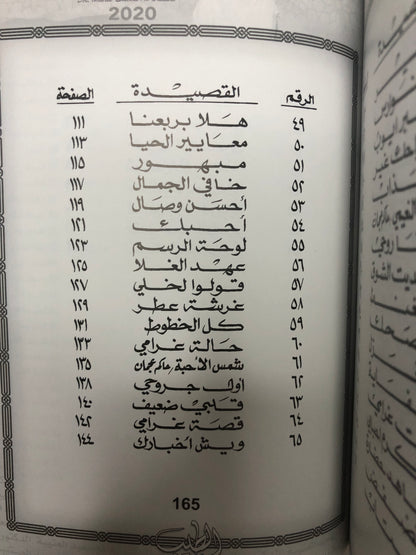 2020
الرقم القصيدة الصفحة
٤٩ هلا بربعنا ١١١
٥٠ معايير الحيا ١١٣
٥١ مبهور ١١٥
٥٢ خافي الجمال ١١٧
٥٣ أحسن وصال ١١٩
٥٤ أحبك ١٢١
٥٥ لوحة الرسم ١٢٣
٥٦ عهد الغلا ١٢٥
٥٧ قولوا لخلي ١٢٧
٥٨ غرشة عطر ١٢٩
٥٩ كل الخطوط ١٣١
٦٠ حالة غرامي ١٣٣
٦١ شمس الأحبة/حاكم عجمان ١٣٥
٦٢ أول جروحي ١٣٨
٦٣ قلبي ضعيف ١٤٠
٦٤ قصة غرامي ١٤٢
٦٥ ويش أخبارك ١٤٤
165